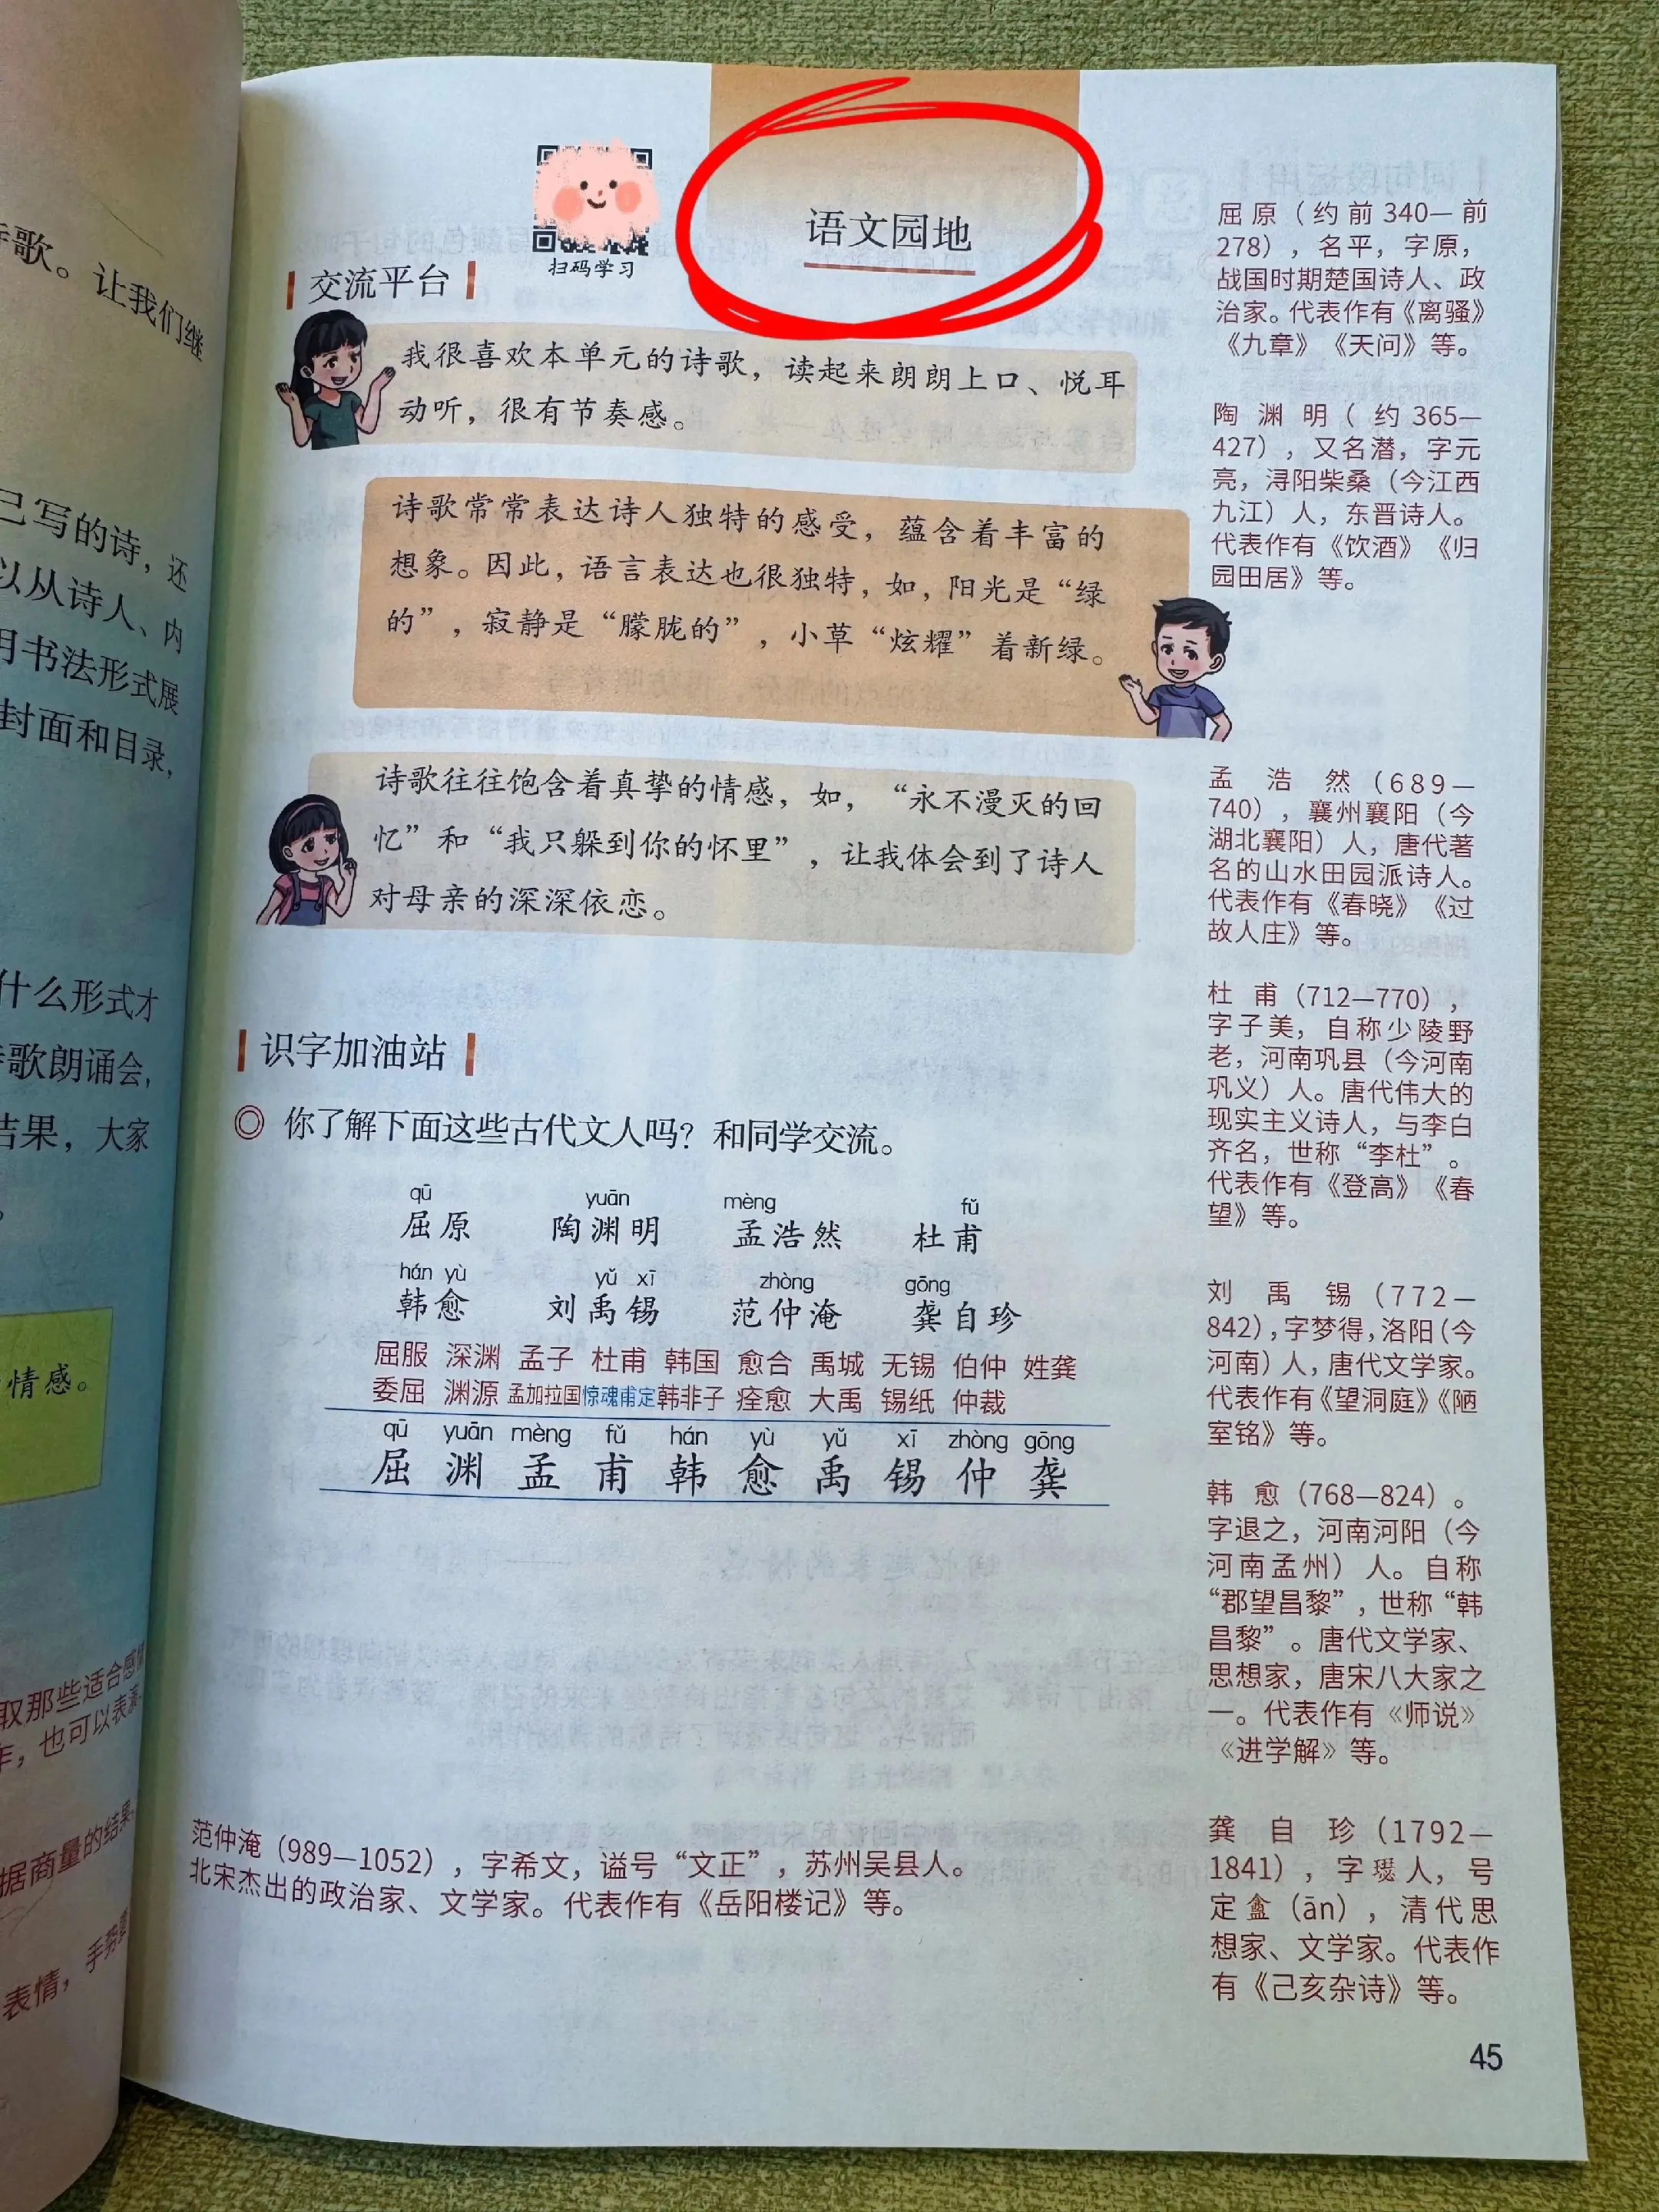 语文园地
扫码学习
交流平台
我很喜欢本单元的诗歌，读起来朗朗上口、悦耳
动听，很有节奏感。
诗歌常常表达诗人独特的感受，蕴含着丰富的
想象。因此，语言表达也很独特，如，阳光是“绿
的”，寂静是“朦胧的”，小草“炫耀”着新绿。
诗歌往往饱含着真挚的情感，如，“永不漫灭的回
忆”和“我只躲到你的怀里”，让我体会到了诗人
对母亲的深深依恋。
识字加油站
◎ 你了解下面这些古代文人吗？和同学交流。
qū yuān mèng fǔ
屈原 陶渊明 孟浩然 杜甫
hán yù yǔ xī zhòng gōng
韩愈 刘禹锡 范仲淹 龚自珍
屈服 深渊 孟子 杜甫 韩国 愈合 禹城 无锡 伯仲 姓龚
委屈 渊源 孟加拉国 惊魂甫定 韩非子 痊愈 大禹 锡纸 仲裁
qū yuān mèng fǔ hán yù yǔ xī zhòng gōng
屈 渊 孟 甫 韩 愈 禹 锡 仲 龚
范仲淹（989—1052），字希文，谥号“文正”，苏州吴县人。
北宋杰出的政治家、文学家。代表作有《岳阳楼记》等。
屈原（约前340—前
278），名平，字原，
战国时期楚国诗人、政
治家。代表作有《离骚》
《九章》《天问》等。
陶渊明（约365—
427），又名潜，字元
亮，浔阳柴桑（今江西
九江）人，东晋诗人。
代表作有《饮酒》《归
园田居》等。
孟浩然（689—
740），襄州襄阳（今
湖北襄阳）人，唐代著
名的山水田园派诗人。
代表作有《春晓》《过
故人庄》等。
杜甫（712—770），
字子美，自称少陵野
老，河南巩县（今河南
巩义）人。唐代伟大的
现实主义诗人，与李白
齐名，世称“李杜”。
代表作有《登高》《春
望》等。
刘禹锡（772—
842），字梦得，洛阳（今
河南）人，唐代文学家。
代表作有《望洞庭》《陋
室铭》等。
韩愈（768—824）。
字退之，河南河阳（今
河南孟州）人。自称
“郡望昌黎”，世称“韩
昌黎”。唐代文学家、
思想家，唐宋八大家之
一。代表作有《师说》
《进学解》等。
龚自珍（1792—
1841），字璱人，号
定盦（ān），清代思
想家、文学家。代表作
有《己亥杂诗》等。
45
诗歌。让我们继
己写的诗，还
以从诗人、内
用书法形式展
封面和目录，
什么形式才
诗歌朗诵会，
结果，大家
情感。
取那些适合感情
作，也可以表演
据商量的结果
表情，手势